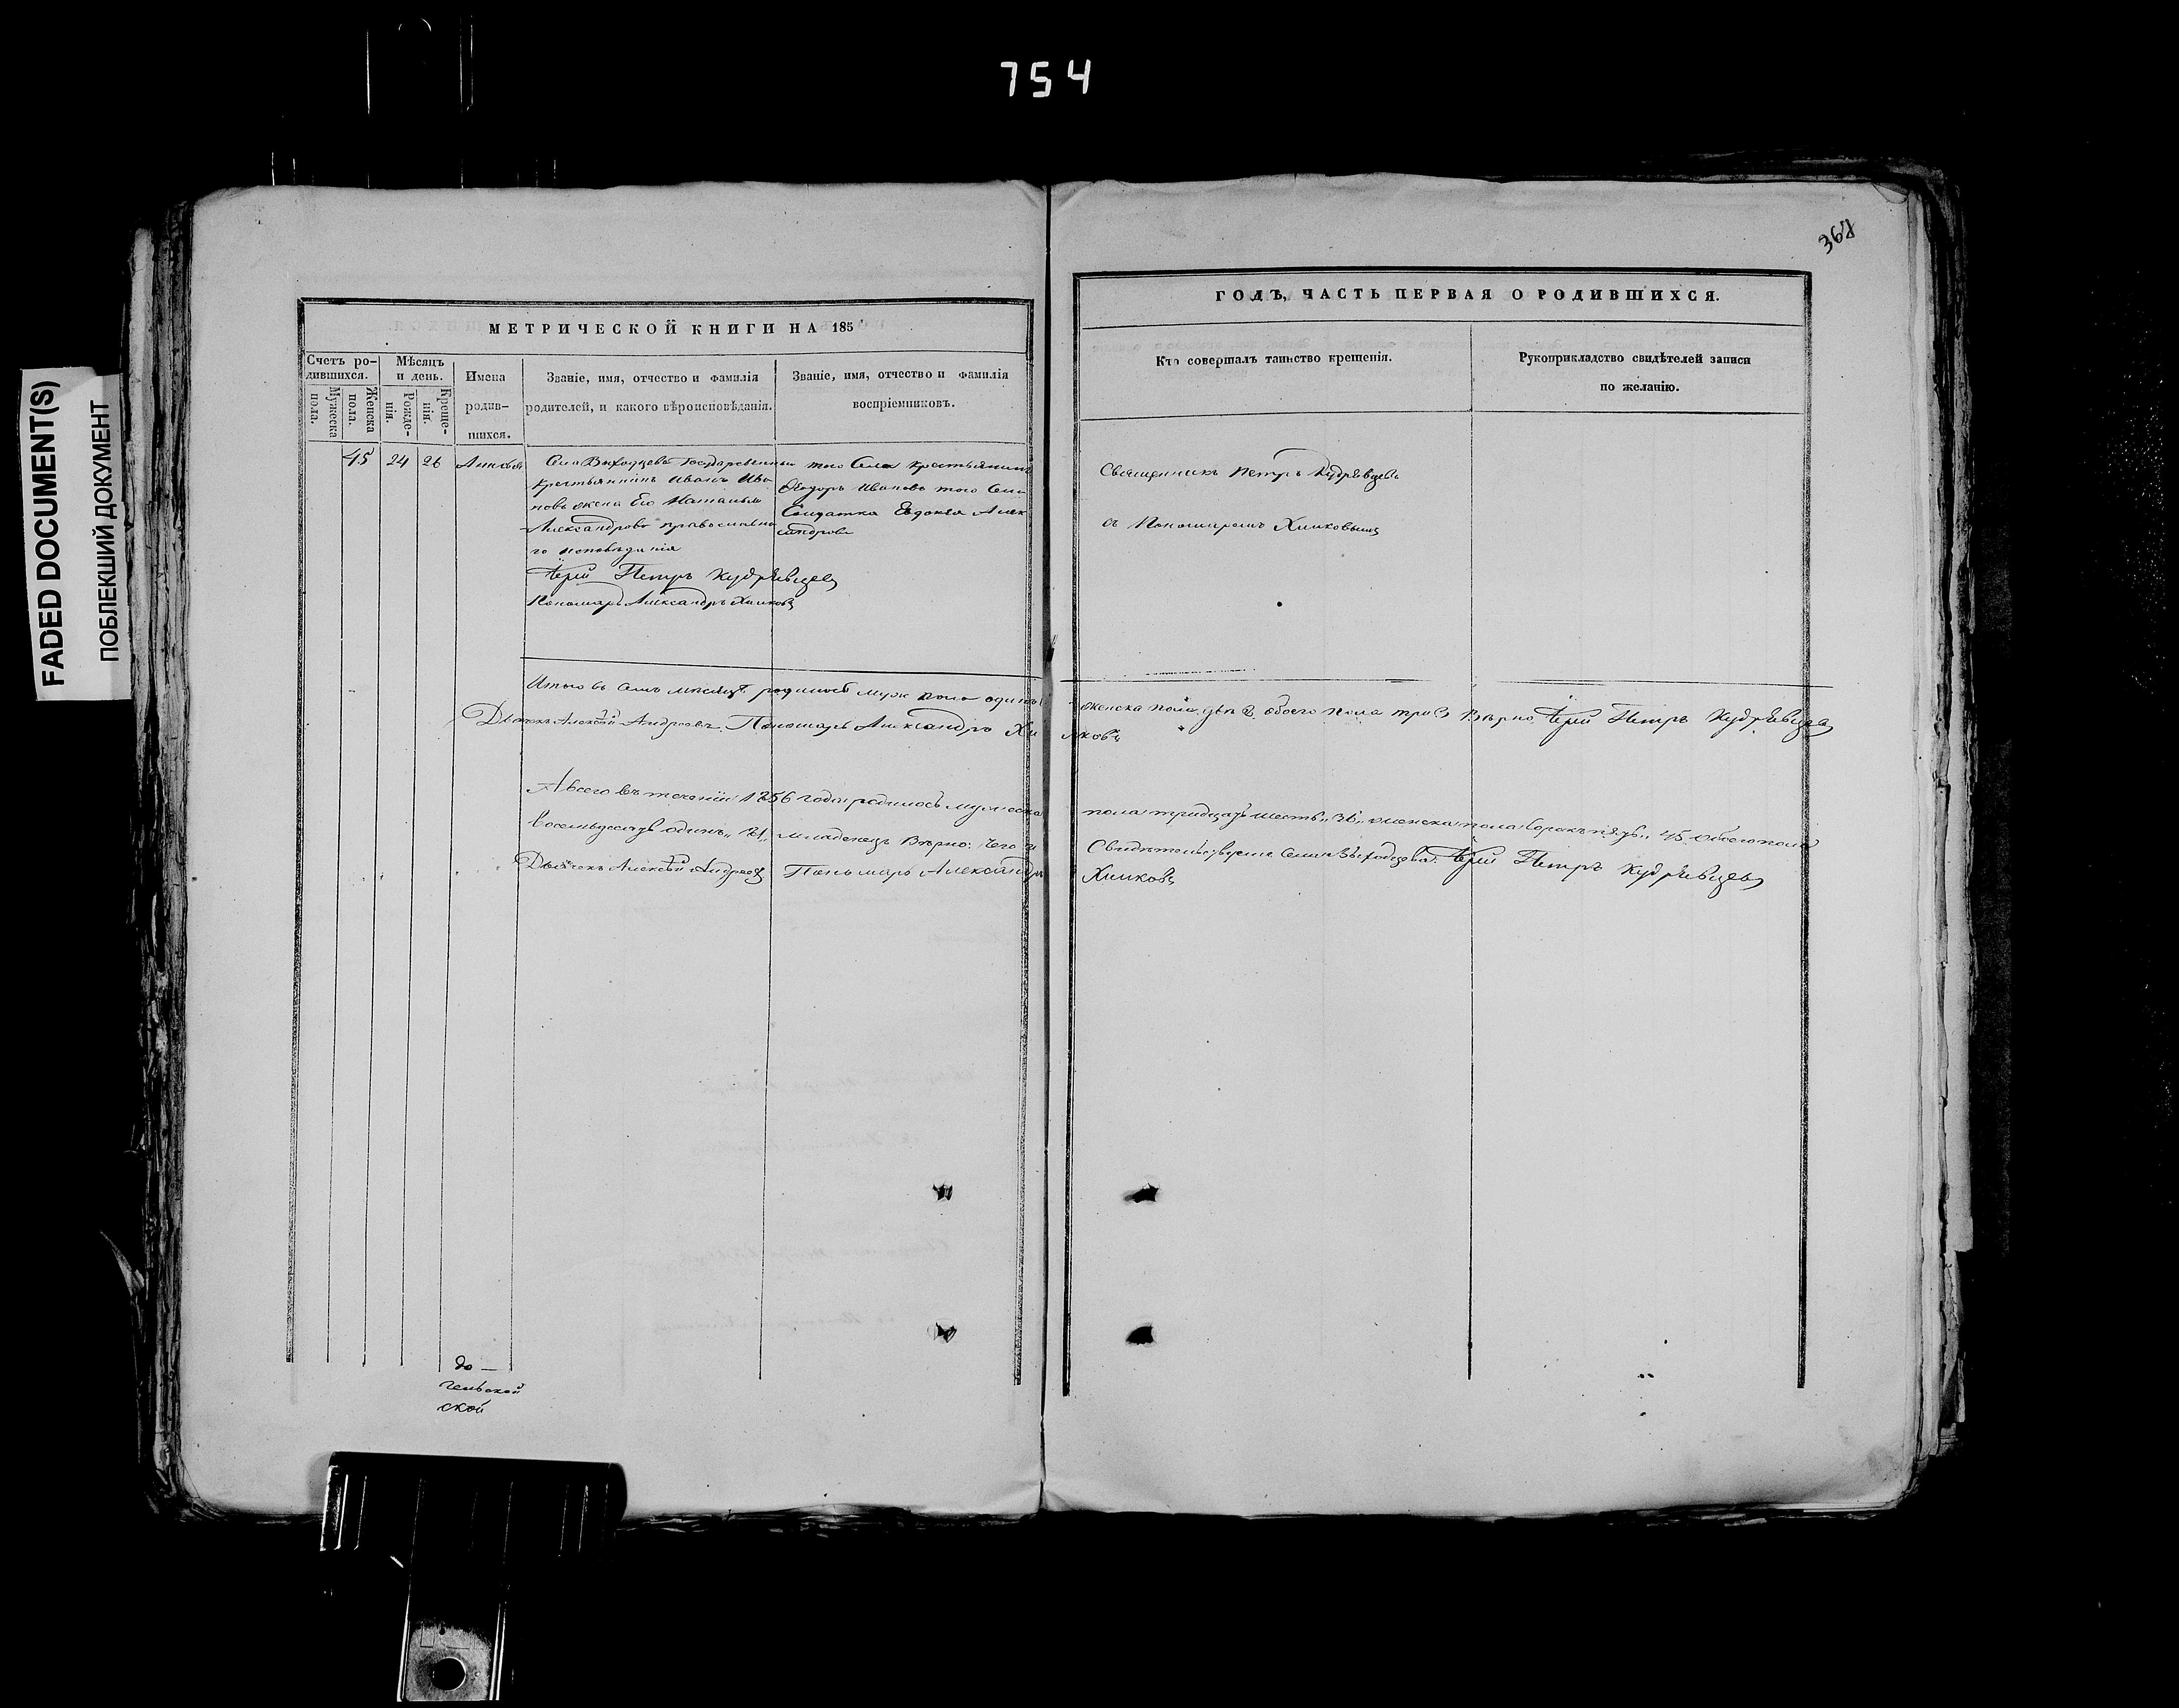 754
368
FADED DOCUMENT(S)
ПОБЛЕКШИЙ ДОКУМЕНТ
МЕТРИЧЕСКОЙ КНИГИ НА 185
Счетъ ро-
дившихся.
Мужеска
пола.
Женска
пола.
Мѣсяцъ
и день.
Рожде-
нія.
Креще-
нія.
Имена
родив-
шихся.
Званіе, имя, отчество и фамилія
родителей, и какого вѣроисповѣданія.
Званіе, имя, отчество и фамилія
воспріемниковъ.
45 24 26
Села Выходцева Государственный
крестьянинъ Иванъ Ива
новъ жена Его Наталья
Александрова православна
го исповѣданія
Іерей Петръ Кудрявцевъ
Пономарь Александръ Химковъ
того Села крестьянинъ
Ѳеодоръ Ивановъ того Села
Солдатка Евдокія Алек
сандрова
Итого въ семъ мѣсяцѣ родилось муж пола одинъ
Дьячекъ Алексѣй Андреевъ. Пономарь Александръ Хи
А всего въ теченіи 1856 года родилось мужеска
восемьдесятъ одинъ „81„ младенецъ Вѣрно:
Дьячекъ Алексѣй Андреевъ Пономарь Александръ
до —
тельской
ской
ГОДЪ, ЧАСТЬ ПЕРВАЯ О РОДИВШИХСЯ.
Кто совершалъ таинство крещенія.
Рукоприкладство свидѣтелей записи
по желанію.
Священникъ Петръ Кудрявцевъ
съ Пономаремъ Химковымъ
женска пола двѣ 2. обоего пола три 3 Вѣрно Іерей Петръ Кудрявцевъ
мковъ
пола тридцать шесть „36„ женска пола сорокъ пять „45 обоего пола
Села Выходцева: Іерей Петръ Кудрявцевъ
Химковъ